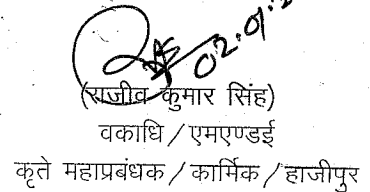 02.01.
(राजीव कुमार सिंह)
वकाधि / एमएण्डई
कृते महाप्रबंधक / कार्मिक / हाजीपुर